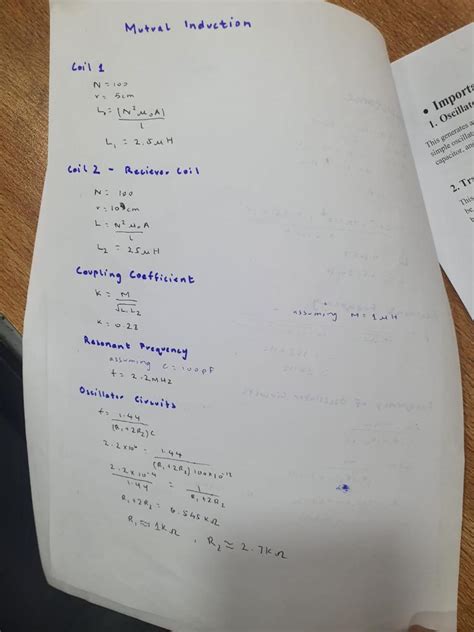 Mutual Induction
Coil 1
N = 100
r = 5cm
L₁ = (N² μ₀ A) / l
L₁ = 2.5 μH
Coil 2 - Reciever Coil
N = 100
r = 10 cm
L = N² μ₀ A / l
L₂ = 25 μH
Coupling Coefficient
K = M / √L₁L₂
assuming M = 1 μH
K = 0.23
Resonant Frequency
assuming C = 100pF
f = 2.2MHz
Oscillator Circuits
f = 1.44 / (R₁+2R₂)C
2.2×10⁶ = 1.44 / (R₁+2R₂)100×10⁻¹²
2.2×10⁻⁴ / 1.44 = 1 / R₁+2R₂
R₁+2R₂ = 6.545KΩ
R₁ ≈ 1KΩ , R₂ ≈ 2.7KΩ
• Importa
1. Oscillato
This generates a
simple oscillat
capacitor, an
2. Tr
This
be